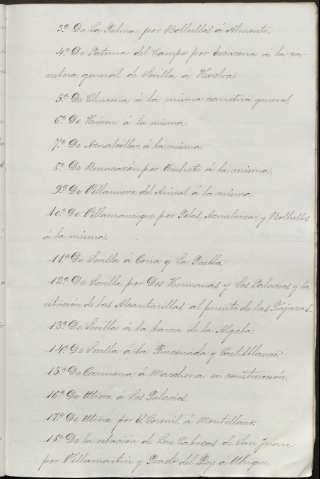 3º De La Palma por Bollullos á Almonte.
4º De Paterna del Campo por Escacena á la ca-
rretera general de Sevilla á Huelva.
5º De Chucena á la misma carretera general.
6º De Hinojos á la misma.
7º De Aznalcóllar á la misma.
8º De Benacazón por Umbrete á la misma.
9º De Villanueva del Ariscal á la misma.
10º De Villamanrique por Pilas, Aznalcázar y Bollullos
á la misma.
11º De Sevilla á Coria y La Puebla.
12º De Sevilla por Dos Hermanas y Los Palacios y la
estación de las Alcantarillas al puente de las Pájaras.
13º De Sevilla á la barca de la Algaba.
14º De Sevilla á La Rinconada y Cantillana.
15º De Carmona á Marchena en construcción.
16º De Utrera á Los Palacios.
17º De Utrera por El Coronil á Montellano.
18º De la estación de Las Cabezas de San Juan
por Villamartin y Prado del Rey á Ubrique